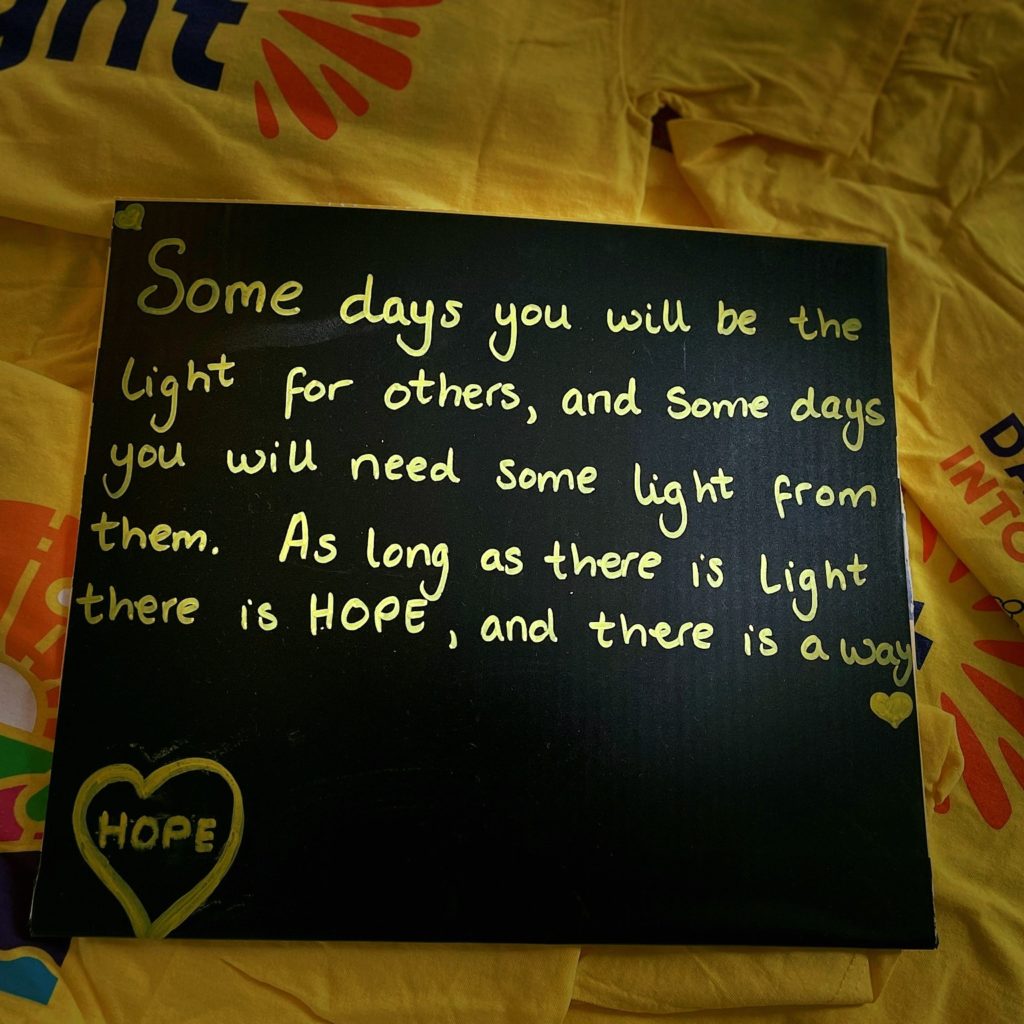 Some days you will be the
light for others, and some days
you will need some light from
them. As long as there is light
there is HOPE, and there is a way
HOPE
INTO